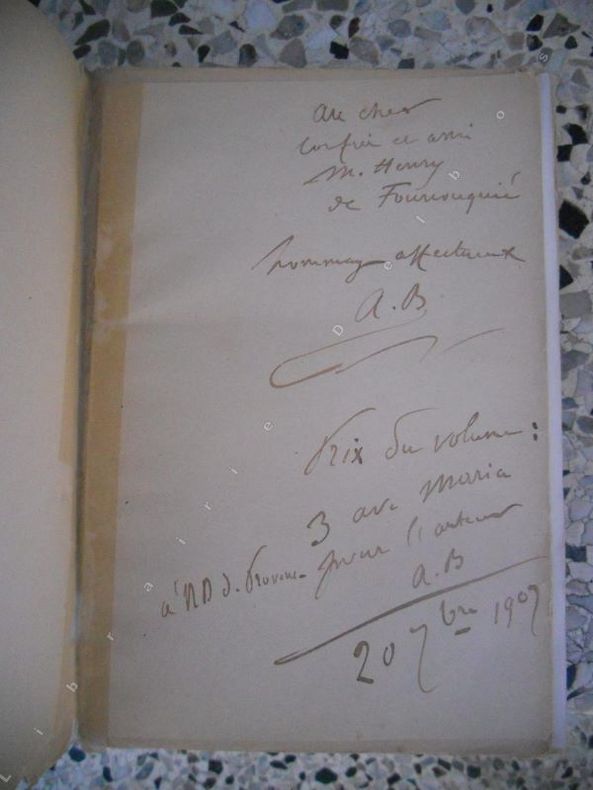 Au cher
confrère et ami
M. Henry
de Fourvouquié
hommage affectueux
A. B
Prix du volume :
3 ave Maria
à ND de Provence pour l'auteur
A. B
20 7bre 1907